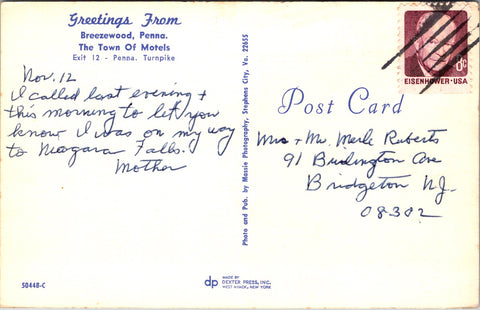 Greetings From
Breezewood, Penna.
The Town Of Motels
Exit 12 - Penna. Turnpike
Nov. 12
I called last evening +
this morning to let you
know I was on my way
to Niagara Falls.
Mother
Photo and Pub. by Massie Photography, Stephens City, Va. 22655
¢
EISENHOWER·USA
Post Card
Mrs + Mr. Merle Roberts
91 Burlington Ave
Bridgeton NJ.
08302
50448-C
dp
MADE BY
DEXTER PRESS, INC.
WEST NYACK, NEW YORK